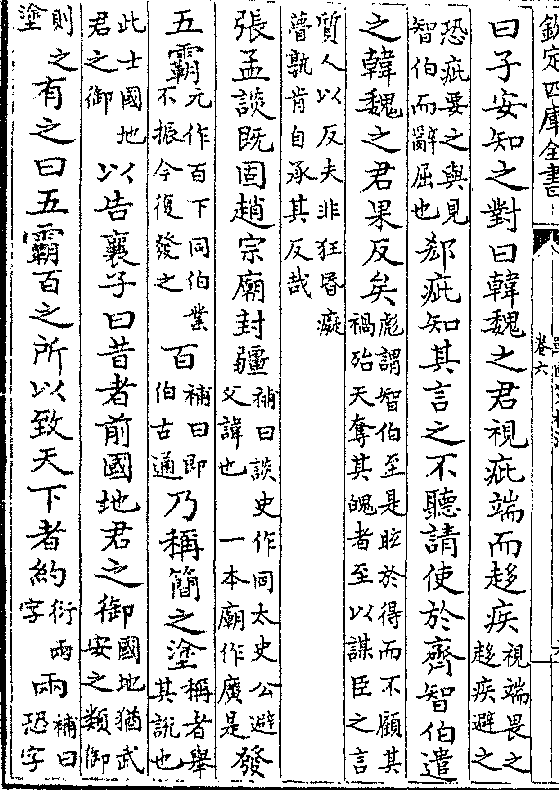 欽定四庫全書
卷六
曰子安知之對曰韓魏之君視疵端而趍疾視端畏之趍疾避之
恐疵要之與見智伯而辭屈也郄疵知其言之不聽請使於齊智伯遣
之韓魏之君果反矣彪謂智伯至是眩於得而不顧其禍殆天奪其魄者至以謀臣之言
質人以反夫非狂昏癡瞢孰肯自承其反哉
張孟談既固趙宗廟封疆補曰談史作同太史公避父諱也一本廟作廣是發
五霸元作百下同伯業不振今復發之百補曰即伯古通乃稱簡之塗稱者舉其説也
此士國地君之御以告襄子曰昔者前國地君之御國地猶武安之類御
則之塗有之曰五霸百之所以致天下者約衍兩字兩補曰恐字